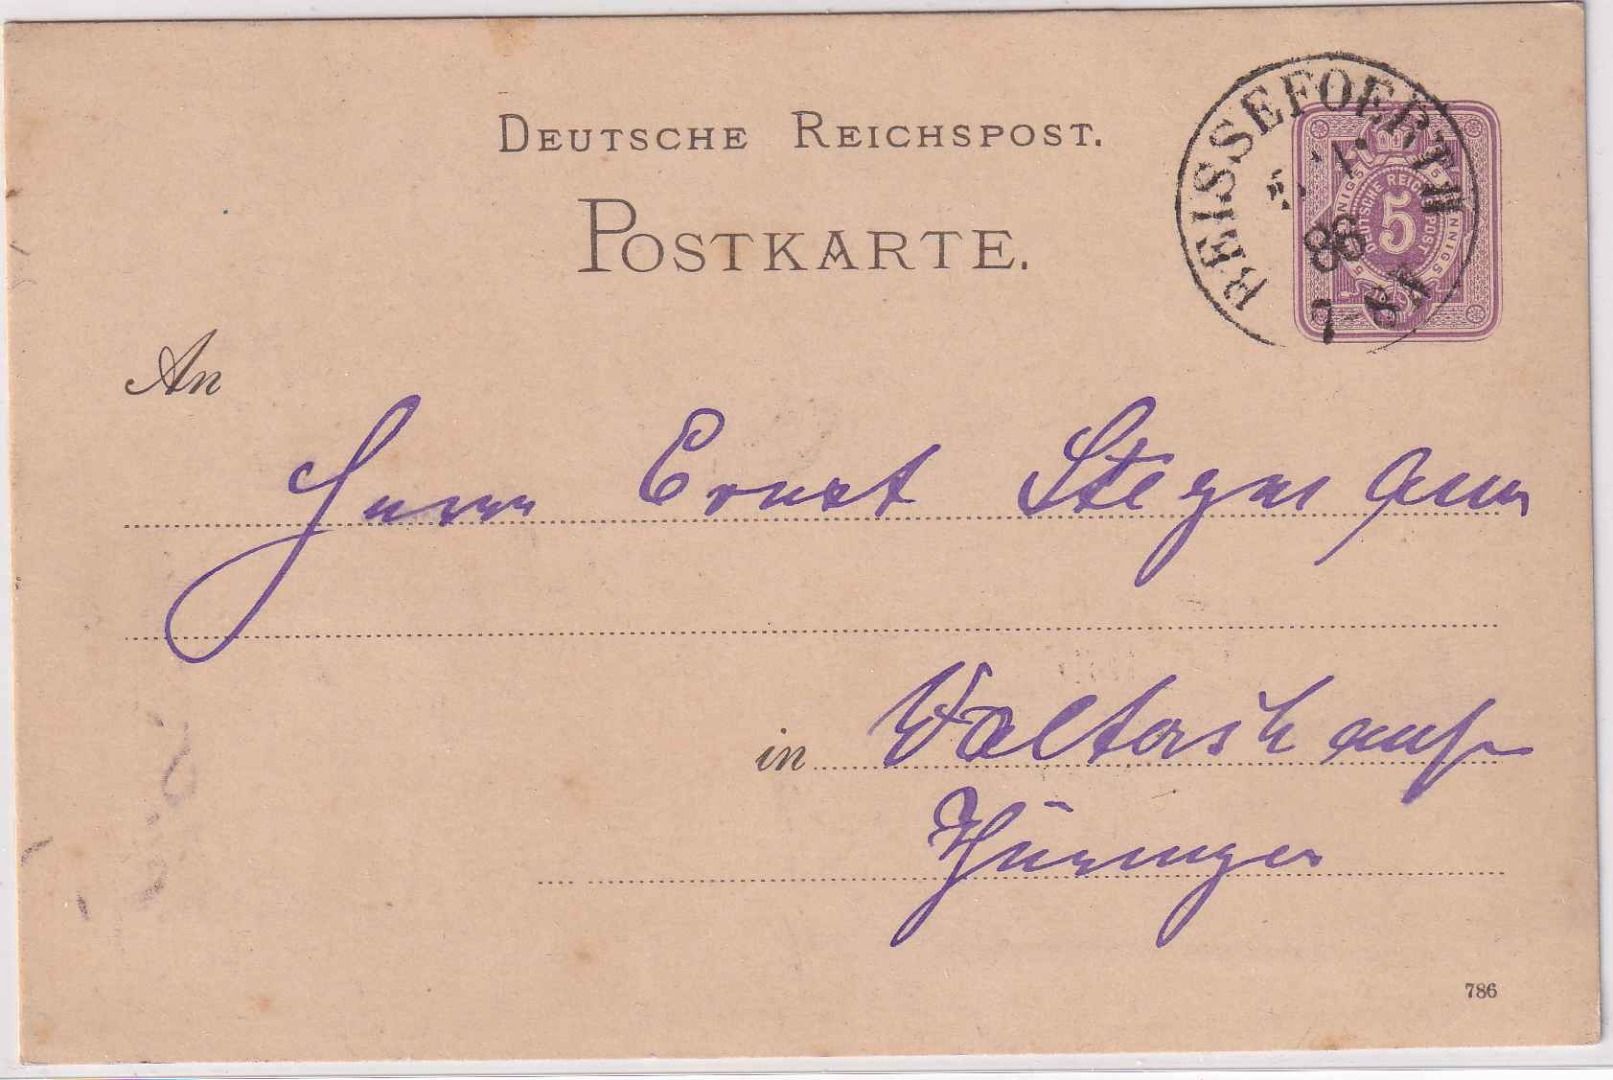 DEUTSCHE REICHSPOST.
POSTKARTE.
BEISSEFOERTH
86
7-8N
DEUTSCHE REICHSPOST
5
An
Herrn Ernst Stegmann
in Waltershausen
Thüringen
786